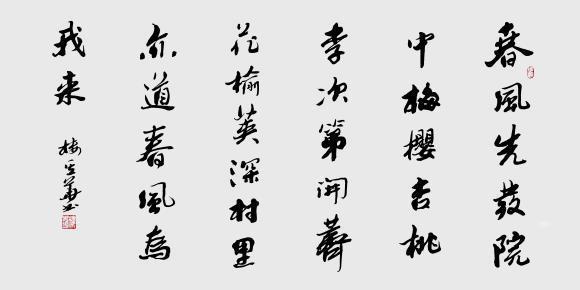 春風先發院
中梅櫻杏桃
李次第開薺
花榆莢深村里
亦道春風為
我来